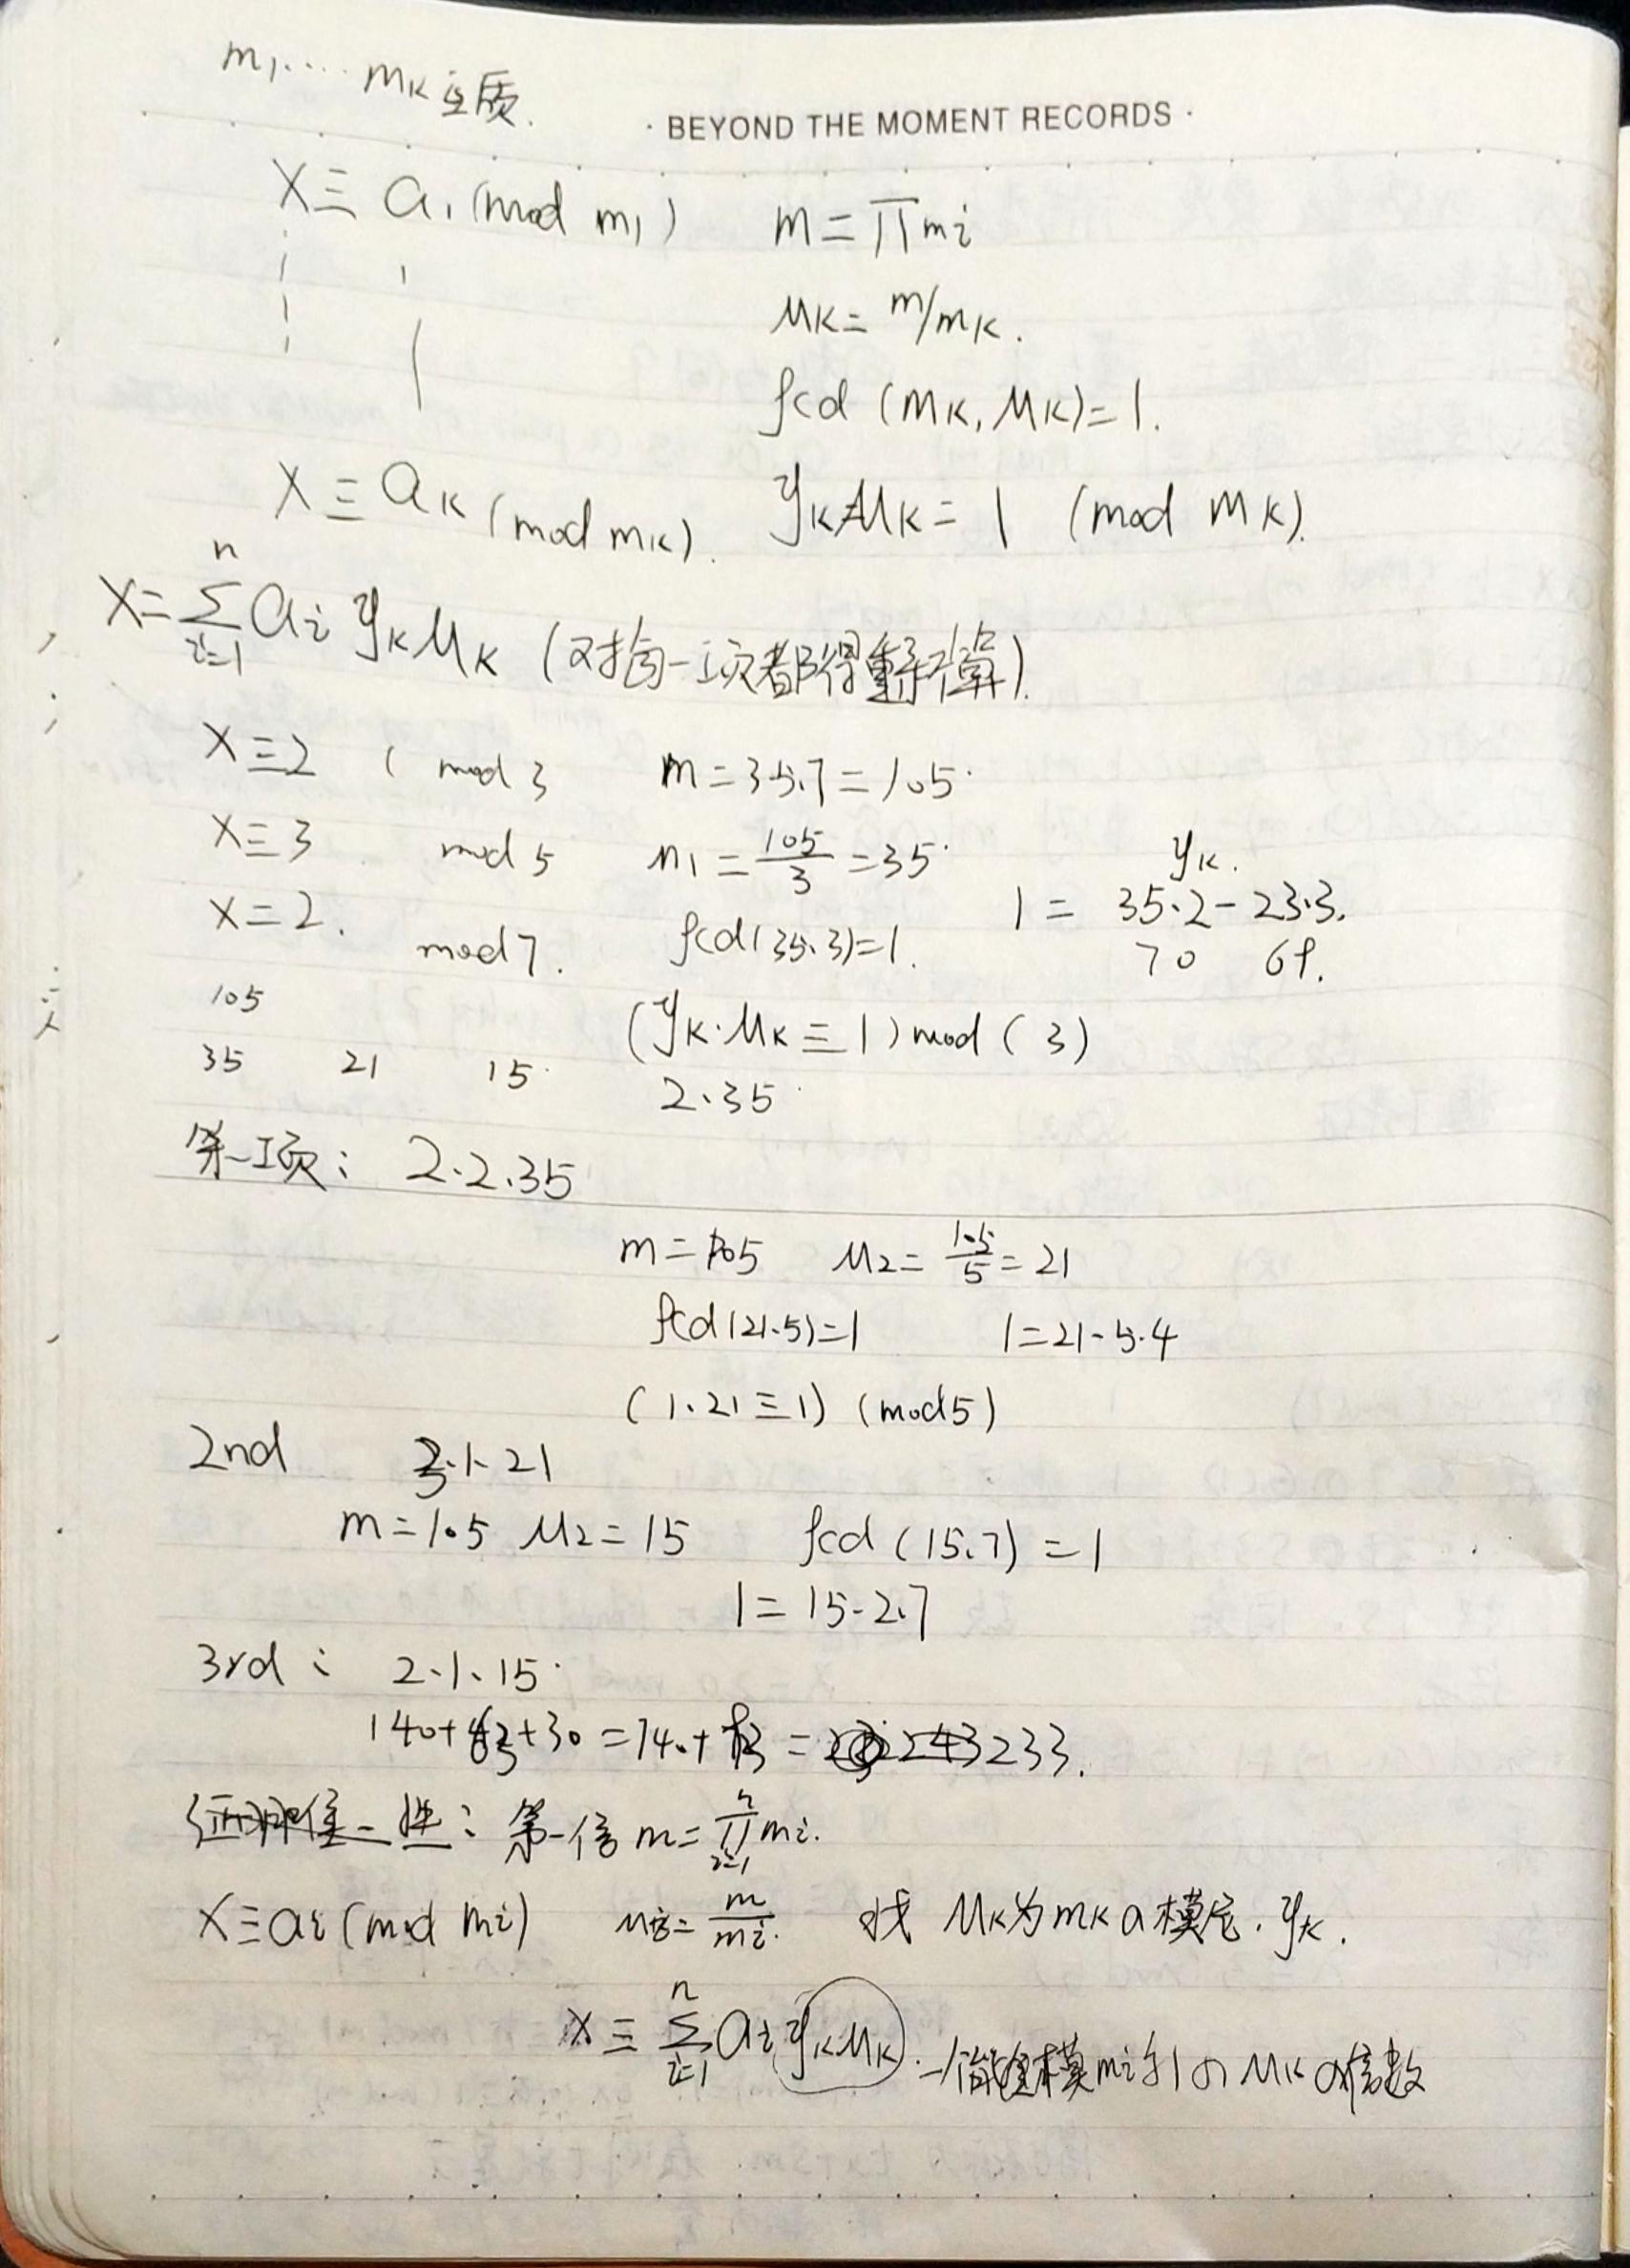 m₁…… mₖ 互质.
· BEYOND THE MOMENT RECORDS ·
X ≡ a₁ (mod m₁) m = ∏mi
Mₖ = m/mₖ.
gcd (mₖ, Mₖ) = 1.
X ≡ aₖ (mod mₖ). yₖMₖ = 1 (mod mₖ).
X = Σⁿᵢ₌₁ ai yₖMₖ (对每一项都得重新算).
X ≡ 2 ( mod 3 m = 3·5·7 = 105
X ≡ 3 mod 5 M₁ = 105/3 = 35 yₖ.
X = 2. mod 7. gcd(35.3)=1. 1 = 35·2 - 23·3.
70 69.
105 (yₖ·Mₖ ≡ 1) mod ( 3)
35 21 15 2·35
第一项: 2·2·35
m = 105 M₂ = 105/5 = 21
gcd(21.5)=1 1=21-5·4
(1·21 ≡ 1) (mod 5)
2nd 3·1·21
m = 105 M₂ = 15 gcd (15.7) = 1
1 = 15-2·7
3rd : 2·1·15
140+63+30 = 140+93 = 243 233.
: m = ∏ⁿᵢ₌₁ mi.
X ≡ ai (mod mi) Mi = m/mi. 找 Mₖ为mₖ a 模逆. yₖ.
X ≡ Σⁿᵢ₌₁ ai yₖMₖ. 一个能 模mi为1の Mₖ の倍数